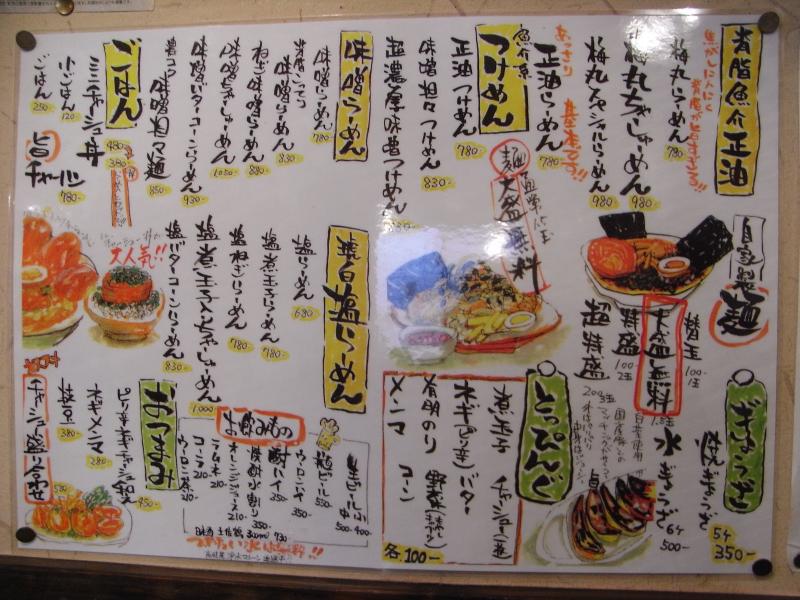 背脂魚介正油
焦がしにんにく
背脂が旨すぎる!!
梅丸らーめん 780-
梅丸ちゃしゅーめん 980
梅丸スペシャルらーめん 980
あっさり 基本です!!
正油らーめん 780-
魚介系つけめん
正油つけめん 780-
味噌担々つけめん 830-
超濃厚味噌つけめん
麺大盛無料
味噌らーめん
味噌らーめん 780-
ねぎ味噌らーめん 880
味噌ちゃしゅーめん 1050-
味噌バターコーンらーめん 930-
味噌担々麺 850
ごはん
ミニチャーシュー丼 380-
小ごはん 120
ごはん 250
旨チャーハン 780-
大人気!!
自家製麺
替玉 100-
大盛無料
特盛 100-
超特盛 200-
琥白塩らーめん
塩らーめん 680-
塩煮玉子らーめん 780-
塩ねぎらーめん 780
塩煮玉子入ちゃしゅーめん 1000-
塩バターコーンらーめん 830-
ぎょうざ
焼ぎょうざ 5ケ 350-
水ぎょうざ 6ケ 500-
白菜使用
国産豚の
とっぴんぐ
煮玉子 チャーシュー(一枚)
ネギ(ピリ辛) バター
有明のり 野菜
メンマ コーン
各100-
お飲みもの
生ビール 中 500- 小 400-
瓶ビール 550
ウーロンハイ 350-
酎ハイ 350-
焼酎水割り 350-
オレンジジュース 210-
ラムネ 210-
コーラ 210
ウーロン茶 210-
おつまみ
ピリ辛ネギチャーシュー 450-
ネギメンマ 280-
枝豆 380-
チャーシュー盛り合わせ 550